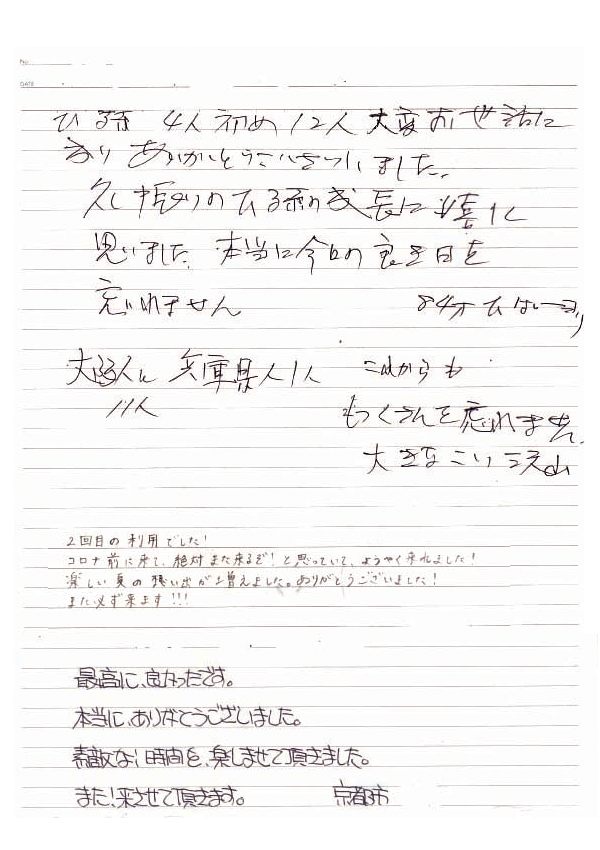 No.
DATE
ひ孫 4人 初め 12人 大変お世話に
なり ありがとうございました。
久し振りのひ孫の成長に嬉しく
思いました。本当に今日の良き日を
忘れません 84才
大阪人と 兵庫県人1人 これからも
11人
もっくさんを忘れません
大きなこい
2回目の利用でした!
コロナ前に来て、絶対また来るぞ!と思っていて、ようやく来れました!
楽しい夏の思い出が増えました。ありがとうございました!
また必ず来ます!!!
最高に、良かったです。
本当に、ありがとうございました。
素敵な!時間を、楽しませて頂きました。
また!来させて頂きます。 京都市